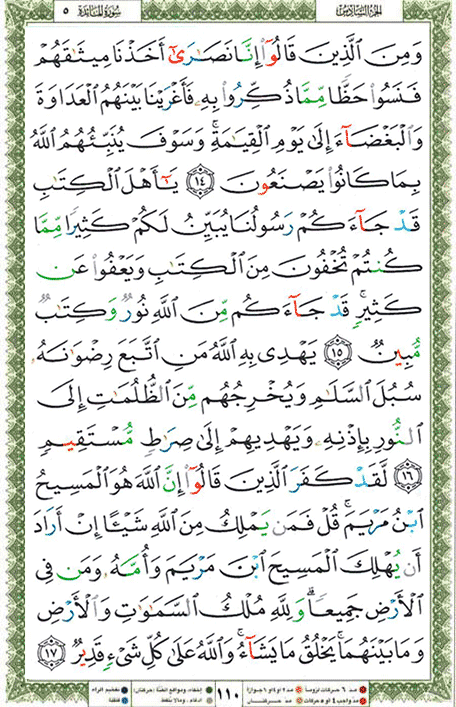 الجزء السادس سورة المائدة ٥
وَمِنَ ٱلَّذِينَ قَالُوٓا۟ إِنَّا نَصَٰرَىٰٓ أَخَذْنَا مِيثَٰقَهُمْ
فَنَسُوا۟ حَظًّا مِّمَّا ذُكِّرُوا۟ بِهِۦ فَأَغْرَيْنَا بَيْنَهُمُ ٱلْعَدَاوَةَ
وَٱلْبَغْضَآءَ إِلَىٰ يَوْمِ ٱلْقِيَٰمَةِ ۚ وَسَوْفَ يُنَبِّئُهُمُ ٱللَّهُ
بِمَا كَانُوا۟ يَصْنَعُونَ ١٤ يَٰٓأَهْلَ ٱلْكِتَٰبِ
قَدْ جَآءَكُمْ رَسُولُنَا يُبَيِّنُ لَكُمْ كَثِيرًا مِّمَّا
كُنتُمْ تُخْفُونَ مِنَ ٱلْكِتَٰبِ وَيَعْفُوا۟ عَن
كَثِيرٍ ۚ قَدْ جَآءَكُم مِّنَ ٱللَّهِ نُورٌ وَكِتَٰبٌ
مُّبِينٌ ١٥ يَهْدِى بِهِ ٱللَّهُ مَنِ ٱتَّبَعَ رِضْوَٰنَهُۥ
سُبُلَ ٱلسَّلَٰمِ وَيُخْرِجُهُم مِّنَ ٱلظُّلُمَٰتِ إِلَى
ٱلنُّورِ بِإِذْنِهِۦ وَيَهْدِيهِمْ إِلَىٰ صِرَٰطٍ مُّسْتَقِيمٍ
١٦ لَّقَدْ كَفَرَ ٱلَّذِينَ قَالُوٓا۟ إِنَّ ٱللَّهَ هُوَ ٱلْمَسِيحُ
ٱبْنُ مَرْيَمَ ۚ قُلْ فَمَن يَمْلِكُ مِنَ ٱللَّهِ شَيْـًٔا إِنْ أَرَادَ
أَن يُهْلِكَ ٱلْمَسِيحَ ٱبْنَ مَرْيَمَ وَأُمَّهُۥ وَمَن فِى
ٱلْأَرْضِ جَمِيعًا ۗ وَلِلَّهِ مُلْكُ ٱلسَّمَٰوَٰتِ وَٱلْأَرْضِ
وَمَا بَيْنَهُمَا ۚ يَخْلُقُ مَا يَشَآءُ ۚ وَٱللَّهُ عَلَىٰ كُلِّ شَىْءٍ قَدِيرٌ ١٧
مد ٦ حركات لزوماً مد ٢ أو ٤ أو ٦ جوازاً
مد واجب ٤ أو ٥ حركات مد حركتان
١١٠
إخفاء، ومواقع الغنة (حركتان) تفخيم الراء
إدغام، وما لا يلفظ قلقلة